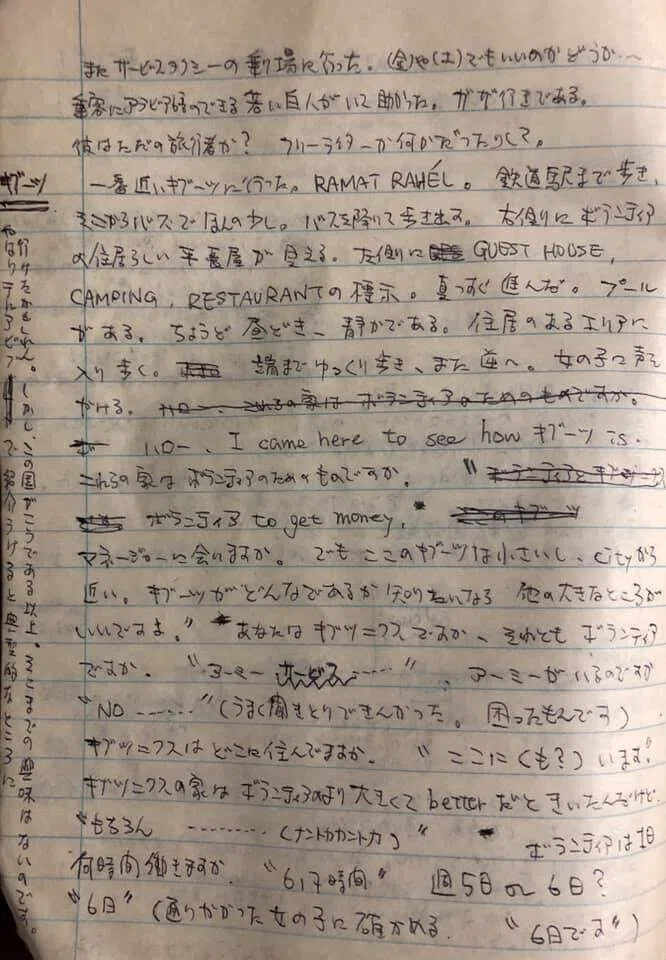 また サービスタクシーの乗り場に行った。(金)や(土)でもいいのかどうか〜
乗客にアラビア語のできる若い白人がいて助かった。ガザ行きである。
彼はただの旅行者か? フリーライターか何かだったりして。
一番近いキブーツに行った。RAMAT RAHÉL。 鉄道駅まで歩き、
そこからバスでほんの少し。バスを降りて歩き出す。右側にボランティア
の住居らしい平長屋が見える。左側に GUEST HOUSE,
CAMPING, RESTAURANTの標示。真っすぐ進んだ。プール
がある。ちょうど昼どき、静かである。住居のあるエリアに
入り歩く。 端までゆっくり歩き、また逆へ。女の子に声を
かける。ハロー、これらの家はボランティアのためのものですか。
ハロー、I came here to see how キブーツ is.
これらの家はボランティアのためのものですか。 "ボランティアとキブーツ
ボランティア to get money,"
マネージャーに会いますか。でもここのキブーツは小さいし、cityから
近い。キブーツがどんなであるか知りたいなら 他の大きなところが
いいですよ。" あなたはキブツニクスですか、それとも ボランティア
ですか。 "アーミー サービス ……" 、アーミーがいるのですか
"NO ……"(うまく聞きとりできんかった。困ったもんです)
キブツニクスはどこに住んでますか。 "ここに(も?)います"
キブツニクスの家はボランティアのより大きくてbetterだときいたんだけど。
"もちろん ………(ナントカカントカ)" ボランティアは1日
何時間働きますか。 "6,7時間" 週5日 or 6日?
"6日"(通りかかった女の子に確かめる。 "6日です")
キブーツ
行けたかもしれん。しかし、この国がこうである以上、そこまでの興味はないのです。
やはりテルアビブで紹介うけると典型的なところに